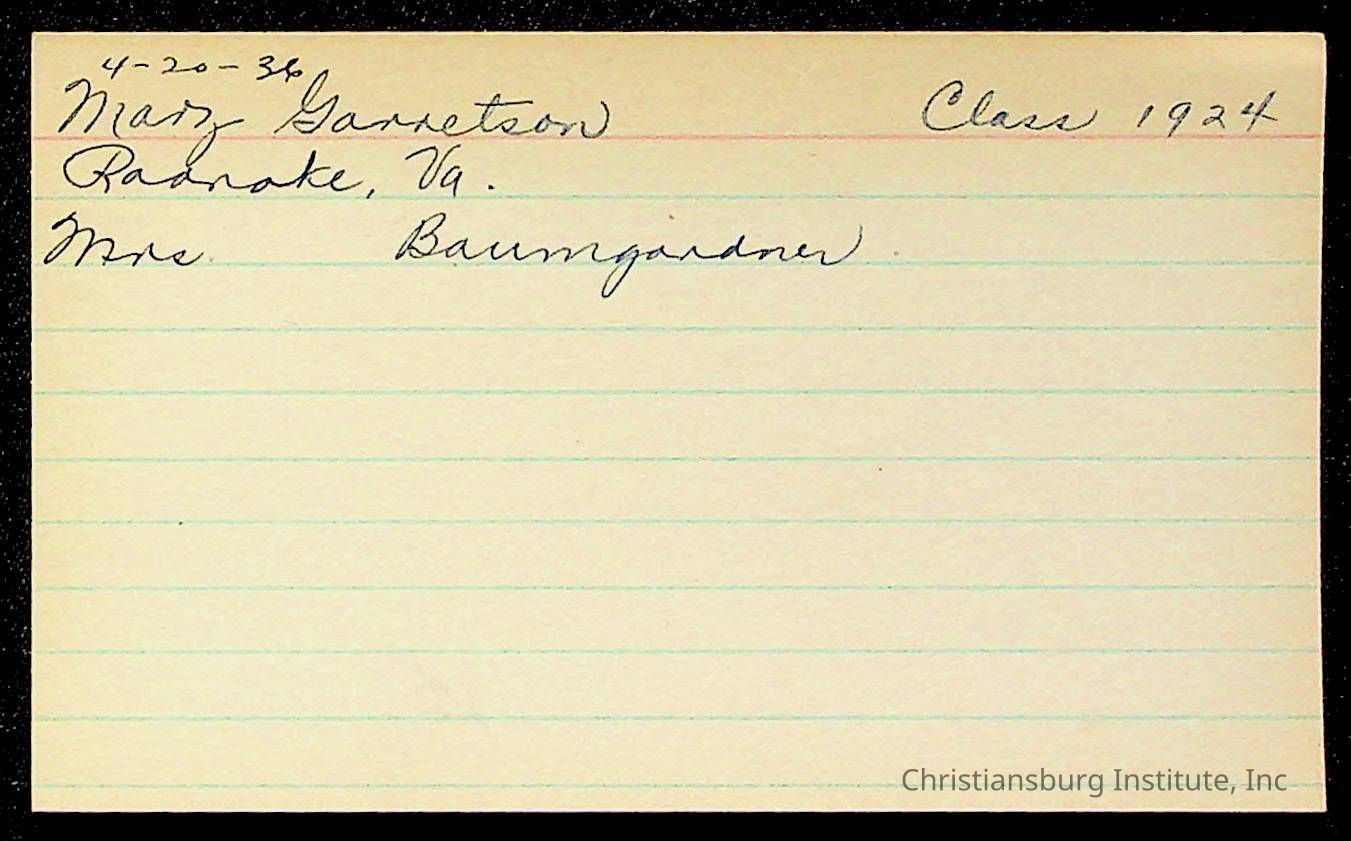 4-20-36
Mary Garretson Class 1924
Roanoke, Va.
Mrs Baumgardner
Christiansburg Institute, Inc